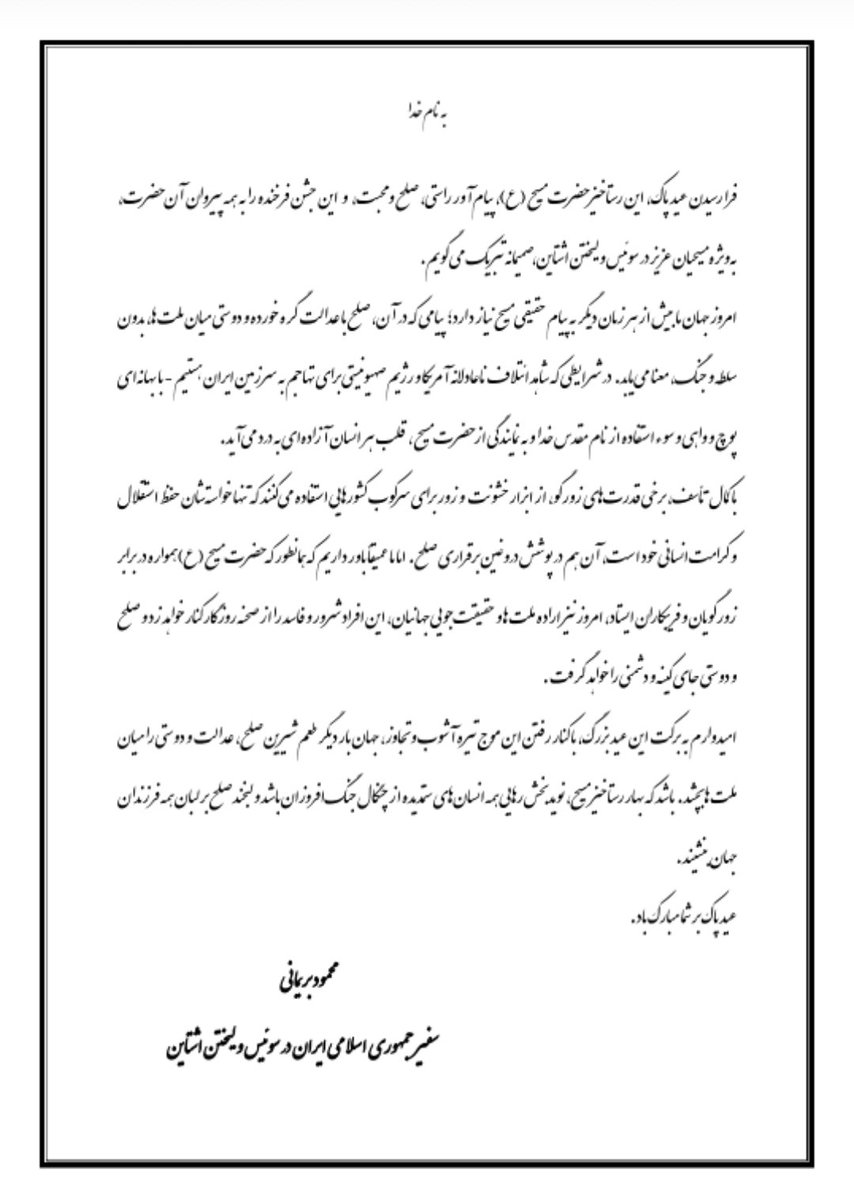 به نام خدا
فرارسیدن عید پاک، این رستاخیز حضرت مسیح (ع)، پیام آور راستی، صلح و محبت، و این جشن فرخنده را به همه پیروان آن حضرت،
به ویژه مسیحیان عزیز در سوئیس و لیختن اشتاین، صمیمانه تبریک می گویم.
امروز جهان ما بیش از هر زمان دیگر به پیام حقیقی مسیح نیاز دارد؛ پیامی که در آن، صلح با عدالت گره خورده و دوستی میان ملت ها، بدون
سلطه و جنگ، معنا می یابد. در شرایطی که شاهد ائتلاف ناعادلانه آمریکا و رژیم صهیونیستی برای تهاجم به سرزمین ایران هستیم - با بهانه ای
پوچ و واهی و سوء استفاده از نام مقدس خدا و به نمایندگی از حضرت مسیح، قلب هر انسان آزاده ای به درد می آید.
با کمال تأسف، برخی قدرت های زورگو، از ابزار خشونت و زور برای سرکوب کشورهایی استفاده می کنند که تنها خواسته شان حفظ استقلال
و کرامت انسانی خود است، آن هم در پوشش دروغین برقراری صلح. اما ما عمیقا باور داریم که همانطور که حضرت مسیح (ع) همواره در برابر
زورگویان و فریبکاران ایستاد، امروز نیز اراده ملت ها و حقیقت جویی جهانیان، این افراد شرور و فاسد را از صحنه روزگار کنار خواهد زد و صلح
و دوستی جای کینه و دشمنی را خواهد گرفت.
امیدوارم به برکت این عید بزرگ، با کنار رفتن این موج تیره آشوب و تجاوز، جهان بار دیگر طعم شیرین صلح، عدالت و دوستی را میان
ملت ها بچشد. باشد که بهار رستاخیز مسیح، نویدبخش رهایی همه انسان های ستمدیده از چنگال جنگ افروزان باشد و لبخند صلح بر لبان همه فرزندان
جهان بنشیند.
عید پاک بر شما مبارک باد.
محمود بریمانی
سفیر جمهوری اسلامی ایران در سوئیس و لیختن اشتاین